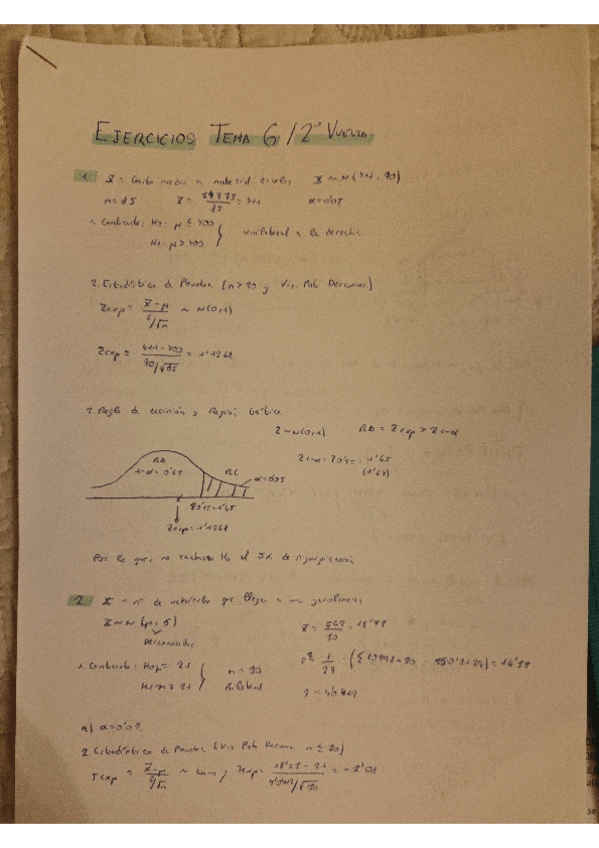 EJERCICIOS TEMA 6 / 2ª VUELTA
1. X = Gasto medio n material escolar X ~ N(
n = 85 α = 0'05
1. Contraste: H0: μ ≤ 400
H1: μ > 400 } unilateral a la derecha
2. Estadístico de Prueba (n > 30 y Var. Pob Descono.)
Zexp = X̄ - μ / S/√n ~ N(0,1)
Zexp = 411 - 400 / 90/√85 = 1'1268
3. Regla de decisión y Región Crítica.
Z ~ N(0,1) RC = Zexp > Z1-α
Z1-α = Z0'95 = 1'65
RA
1-α = 0'95 RC α = 0'05
Z0'95 = 1'65
Zexp = 1'1268
Por lo que, no rechazo H0 al 5% de significación
2. X = nº de vehículos que llegan a una gasolinera
X ~ N(μ, σ)
Desconocidos
1. Contraste: H0: μ = 21 n = 30
H1: μ ≠ 21 } Bilateral
a)
2. Estadístico de Prueba (Var Pob Descono. n ≤ 30)
texp = X̄ - μ / S/√n ~ tn-1 ; texp = = -2'08